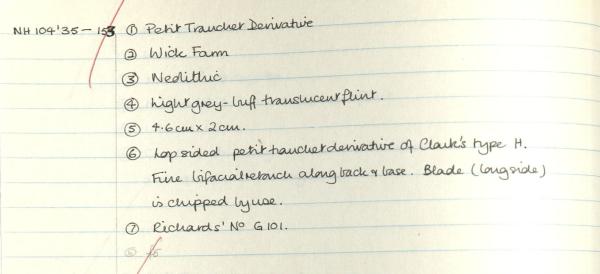 NH 104'35 - 153 ① Petit Trauchet Derivative
② Wick Farm
③ Neolithic
④ Light grey-buff translucent flint.
⑤ 4.6cm x 2cm.
⑥ Lop sided petit trauchet derivative of Clark's type H.
Fine bifacial retouch along back & base. Blade (long side)
is chipped by use.
⑦ Richards' No G101.